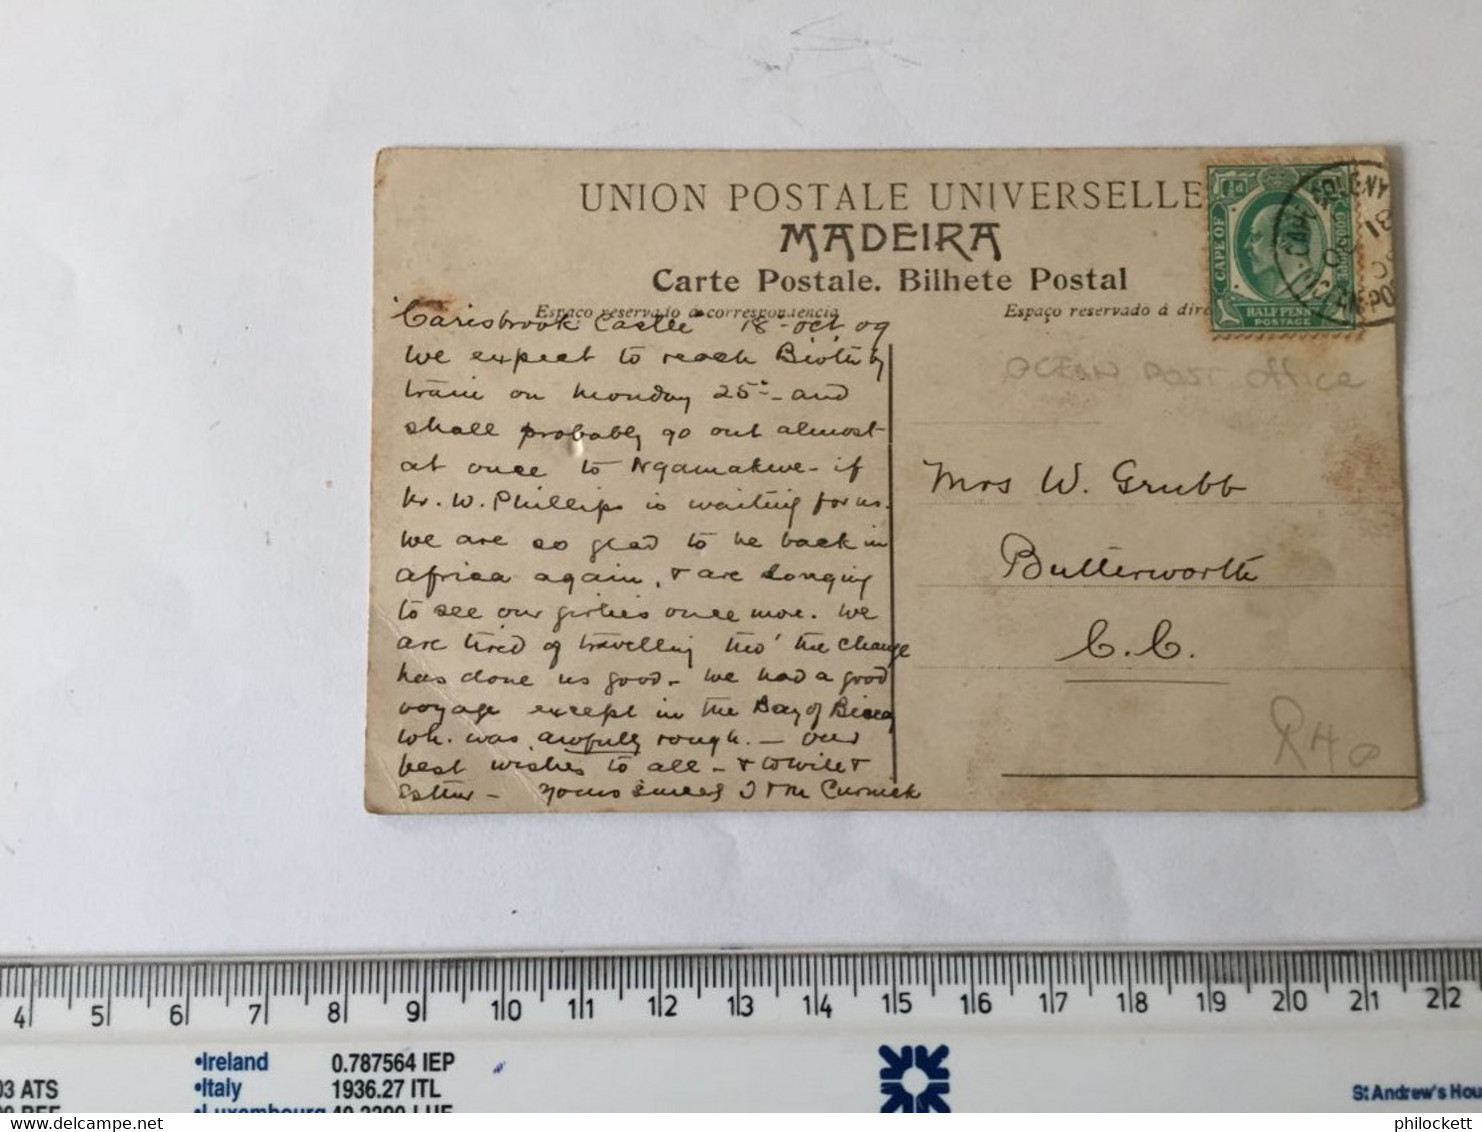 UNION POSTALE UNIVERSELLE
MADEIRA
Carte Postale. Bilhete Postal
Espaço reservado á correspondencia
Espaço reservado á dire
½d
CAPE OF
GOOD HOPE
HALF PENNY
POSTAGE
OCEAN POST OFFICE
"Carisbrook Castle" 18 - Oct 09
We expect to reach B'worth by
train on Monday 25th - and
shall probably go out almost
at once to Nqamakwe - if
Mr. W. Phillips is waiting for us.
We are so glad to be back in
Africa again, & are longing
to see our girlies once more. We
are tired of travelling tho' the change
has done us good - we had a good
voyage except in the Bay of Biscay
wh. was awfully rough. - Our
best wishes to all - &
Esther - Yours J & M Curnick
Mrs W. Grubb
Butterworth
C.C.
R40
4 5 6 7 8 9 10 11 12 13 14 15 16 17 18 19 20 21 22
•Ireland 0.787564 IEP
03 ATS •Italy 1936.27 ITL
•Luxembourg 40.3399 LUF
St Andrew's Hou
philockett